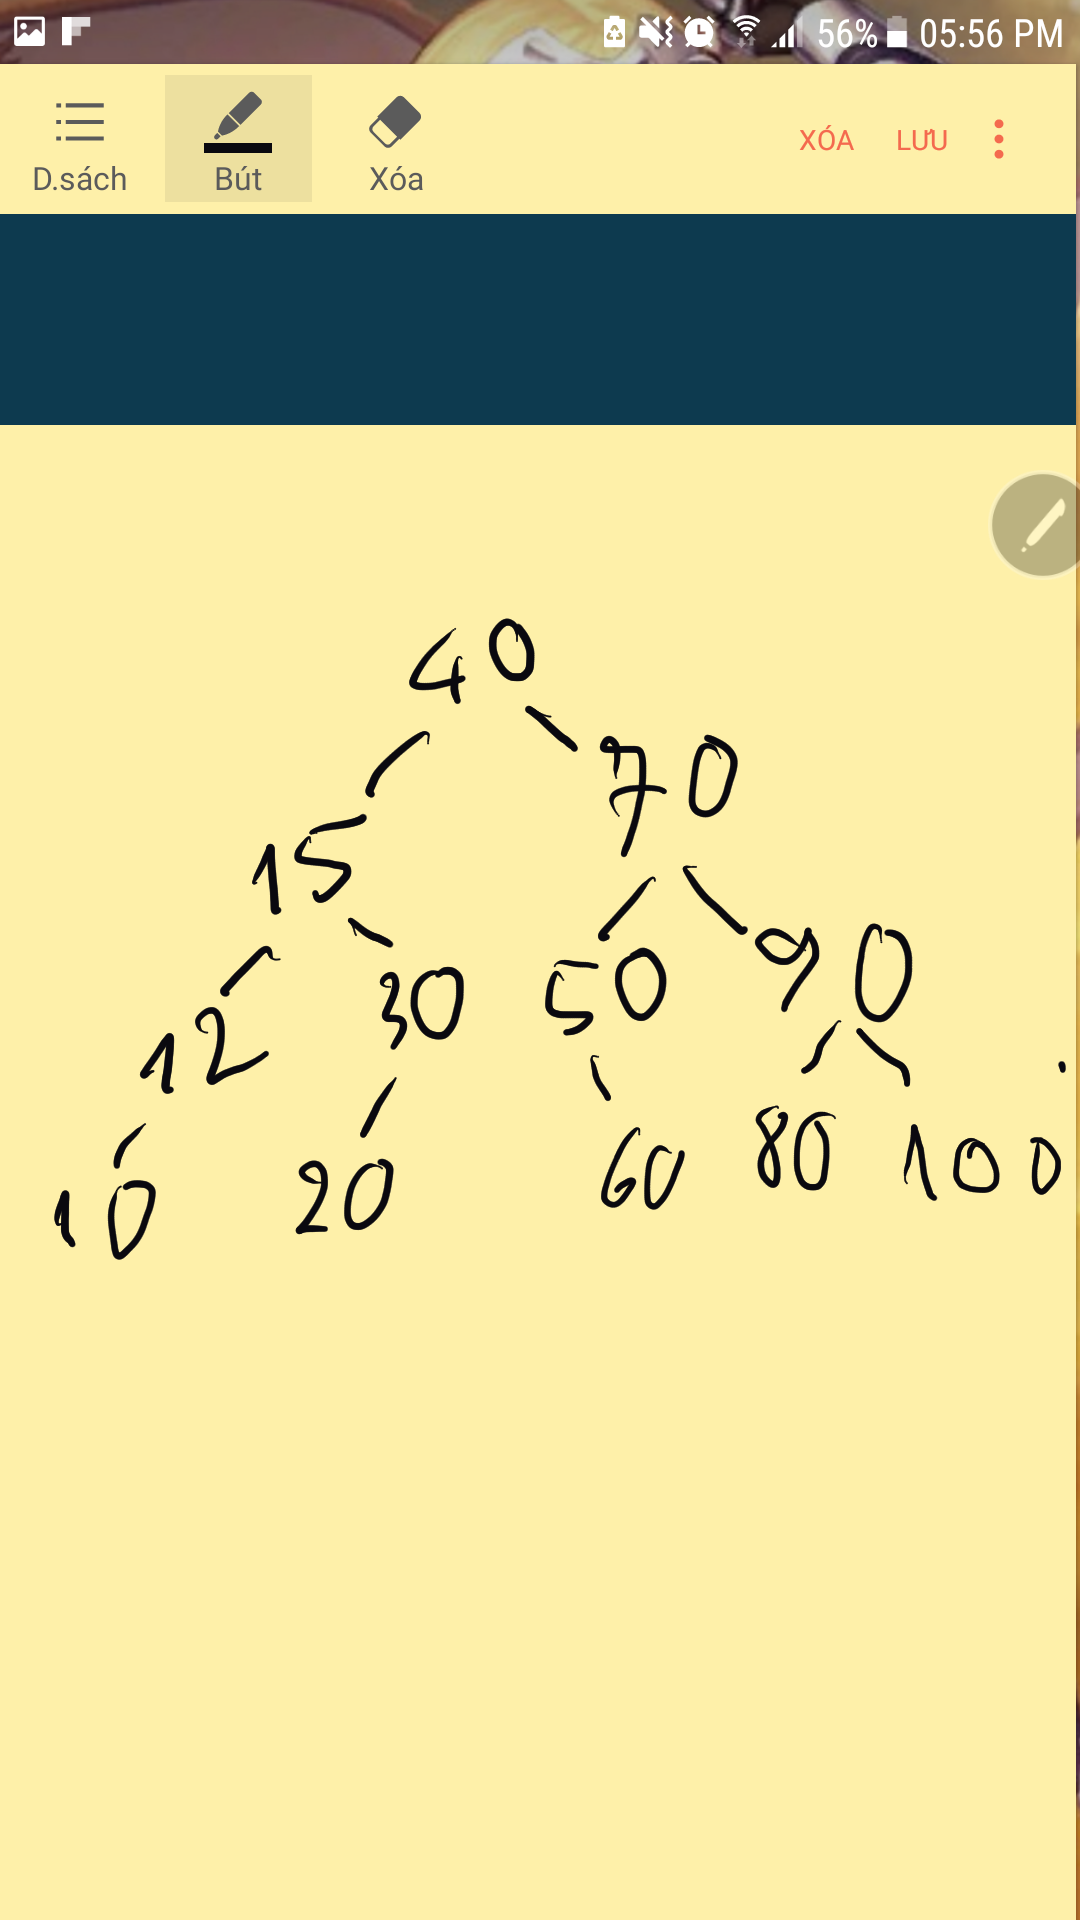 56% 05:56 PM
D.sách Bút Xóa XÓA LƯU
40
70
15
12 30 50 90
10 20 60 80 100